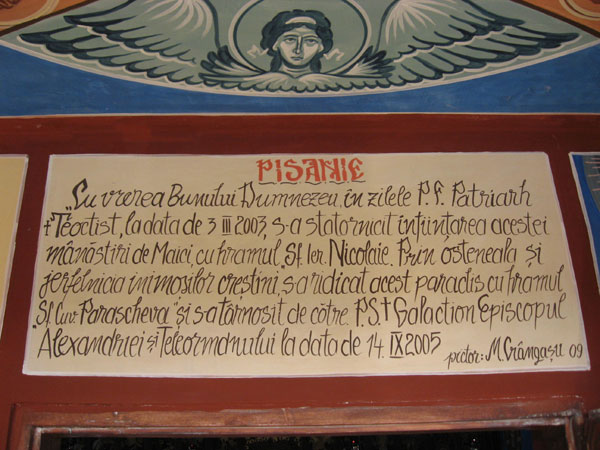 PISANIE
"Cu vrerea Bunului Dumnezeu, în zilele P.F. Patriarh
† Teoctist, la data de 3 III 2003, s-a statornicit înființarea acestei
mănăstiri de Maici, cu hramul „Sf. Ier. Nicolaie. Prin osteneala și
jerfelnicia inimoșilor creștini, s-a ridicat acest paraclis cu hramul
„Sf. Cuv. Parascheva" și s-a târnosit de către P.S. † Galaction Episcopul
Alexandriei și Teleormanului la data de 14 IX 2005
pictor: M. Crângașu 09